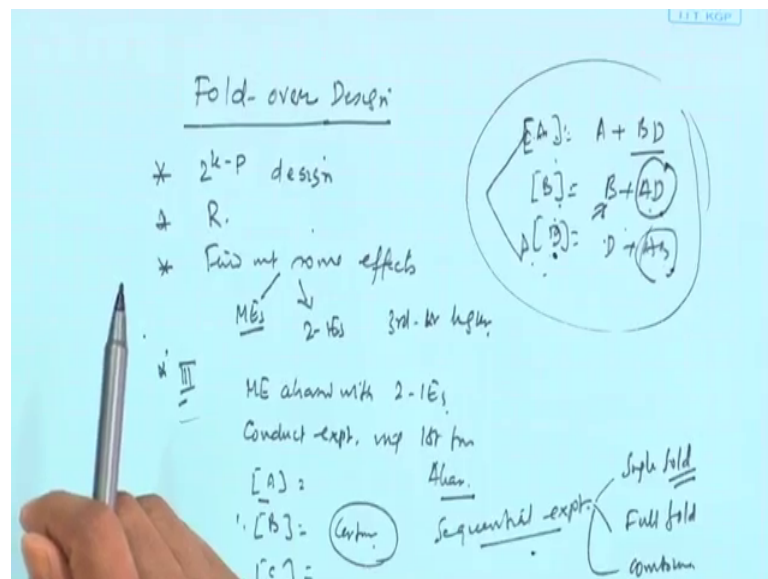 IIT KGP
Fold-over Design
* 2^k-p design
* R.
* Find out some effects
MEs 2-IEs 3rd-or higher
* III ME aliased with 2-IEs
Conduct expt. using 1st fra
[A] = Alias.
[B] = Sequential expt.
[C] =
Single fold
Full fold
[A]: A + BD
[B] = B + AD
[D] = D + AB